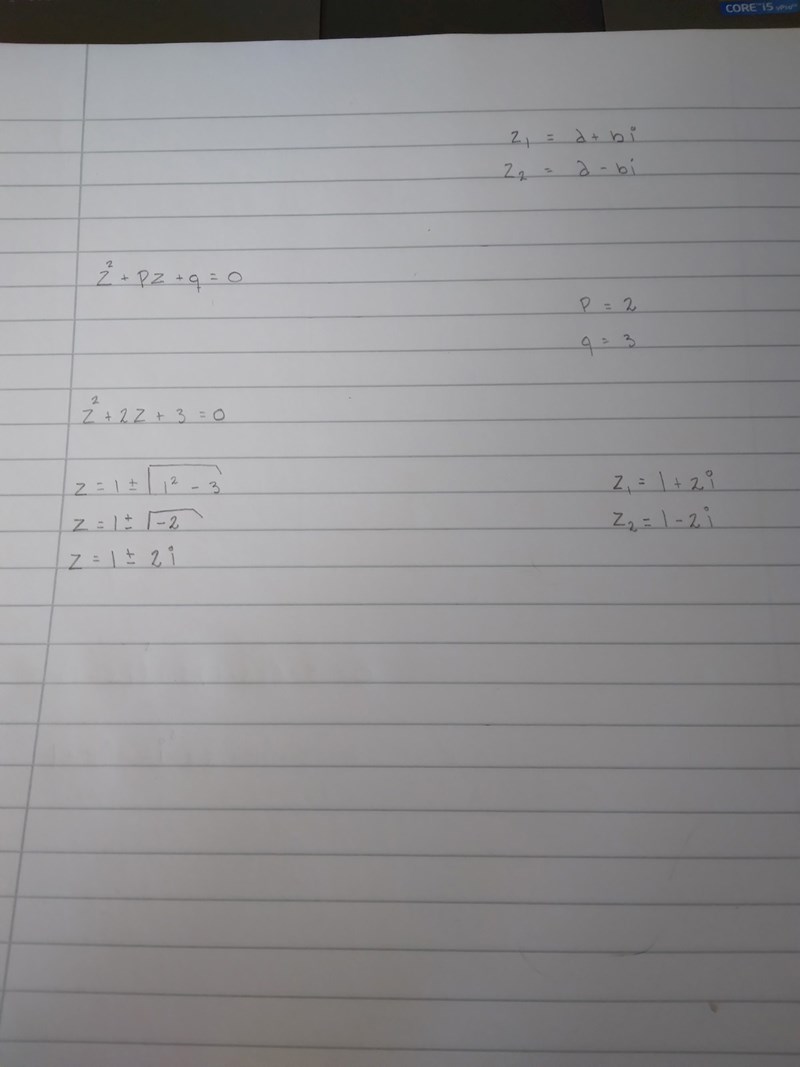 CORE i5
z₁ = a + bi
z₂ = a - bi
z² + pz + q = 0
p = 2
q = 3
z² + 2z + 3 = 0
z = 1 ± √(1² - 3)
z₁ = 1 + 2i
z = 1 ± √(-2)
z₂ = 1 - 2i
z = 1 ± 2i